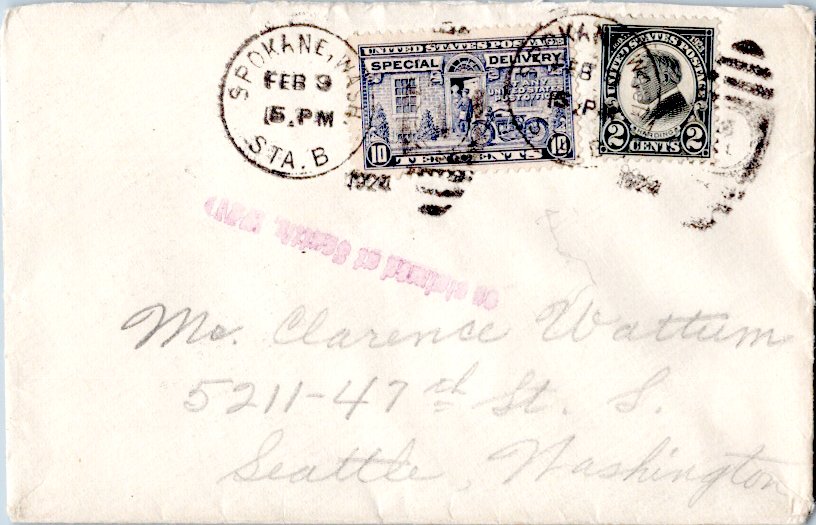 SPOKANE, WASH
FEB 9
5 PM
STA. B
1924
UNITED STATES POSTAGE
SPECIAL DELIVERY
10 TEN CENTS 10
UNITED STATES POSTAGE
HARDING
2 CENTS 2
1924
at Seattle,
Mr. Clarence Wattum
5211-47th St. S.
Seattle, Washington